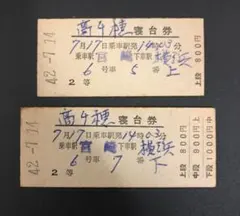 高千穂寝台券
7月17日乗車駅発14時03分
乗車駅 宮崎 下車駅 横浜
6号車5番上
2等
上段 800円
42.-7.14
高千穂寝台券
7月17日乗車駅発14時03分
乗車駅 宮崎 下車駅 横浜
6号車7番下
2等
上段 800円
中段 900円
下段 1000円
42.-7.14